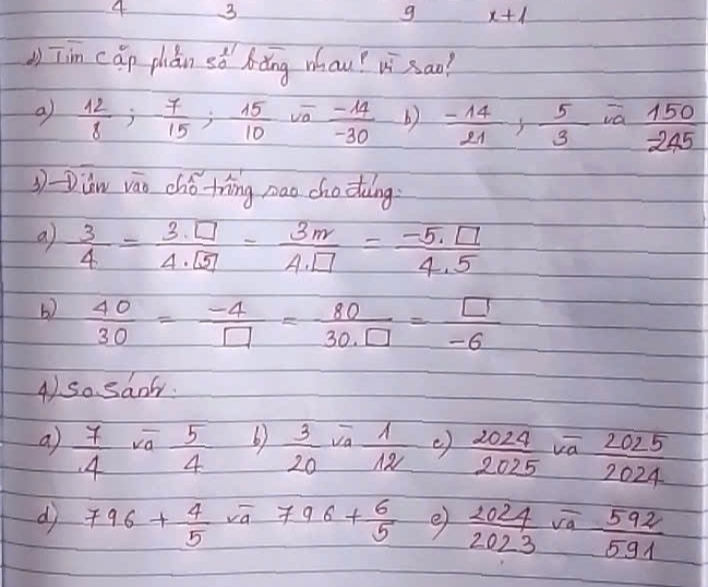 4 3 9 x+1
2) Tìm cặp phân số bằng nhau? vì sao?
a) 12/8 ; 7/15 ; 15/10 và -14/-30 b) -14/21 ; 5/3 và 150/-245
3) Điền vào chỗ trống sao cho đúng:
a) 3/4 = 3.□/4.5 = 3m/4.□ = -5.□/4.5
b) 40/30 = -4/□ = 80/30.□ = □/-6
4) So sánh:
a) 7/4 và 5/4 b) 3/20 và 1/12 c) 2024/2025 và 2025/2024
d) 796 + 4/5 và 796 + 6/5 e) 2024/2023 và 592/591